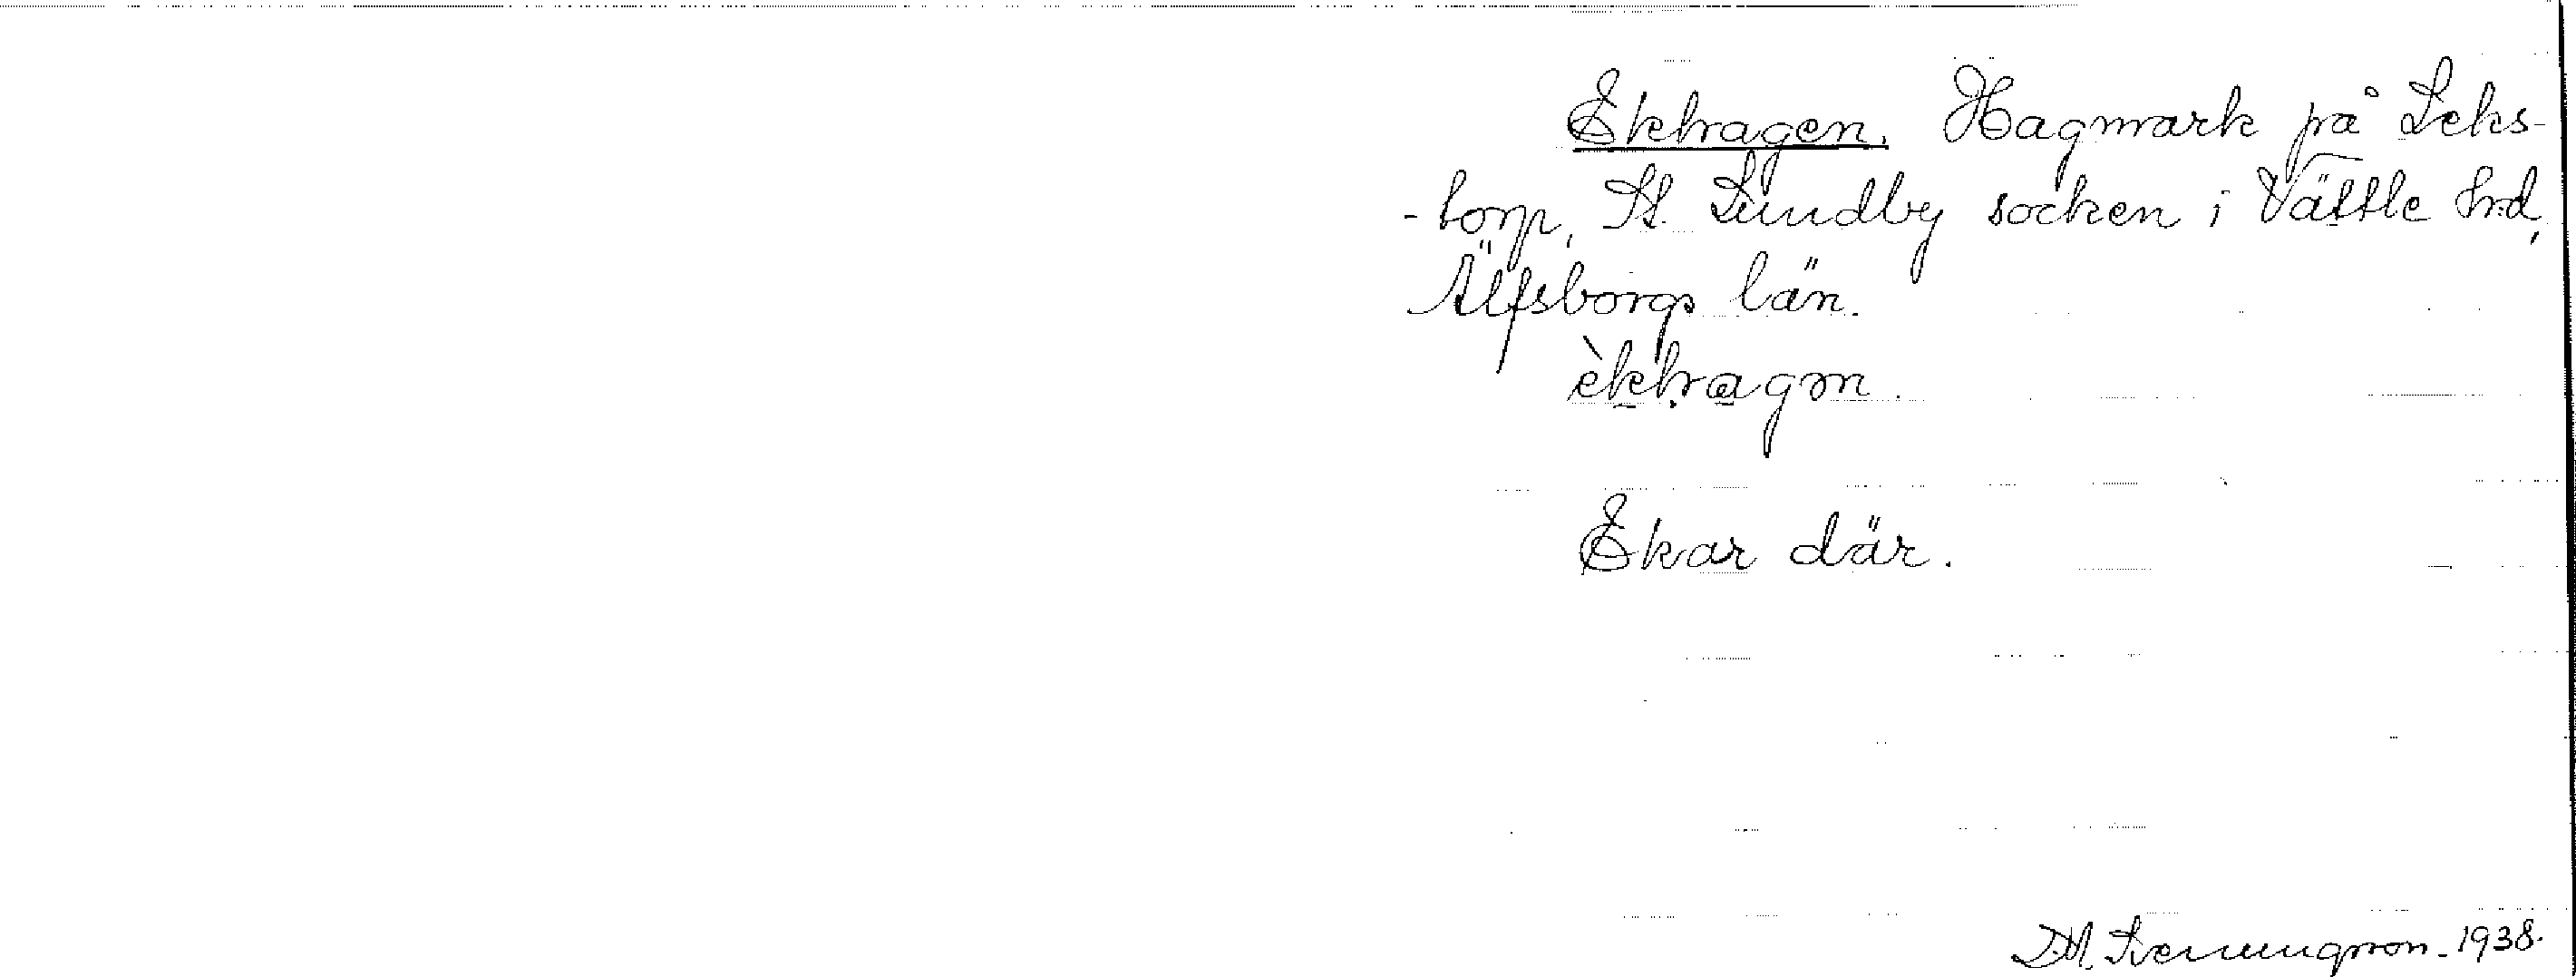 Ekhagen. Hagmark på Leks-
-torp, St. Lundby socken i Vättle hd,
Älfsborgs län.
èkhagən.
Ekar där.
D.A. Svenungsson. 1938.